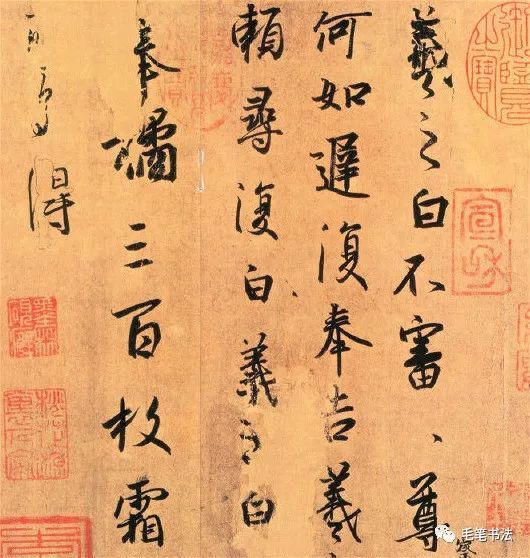 羲之白不審、尊
何如遲復奉告羲
頼尋復白羲之白
奉橘三百枚霜
可多得
宣和
毛笔书法